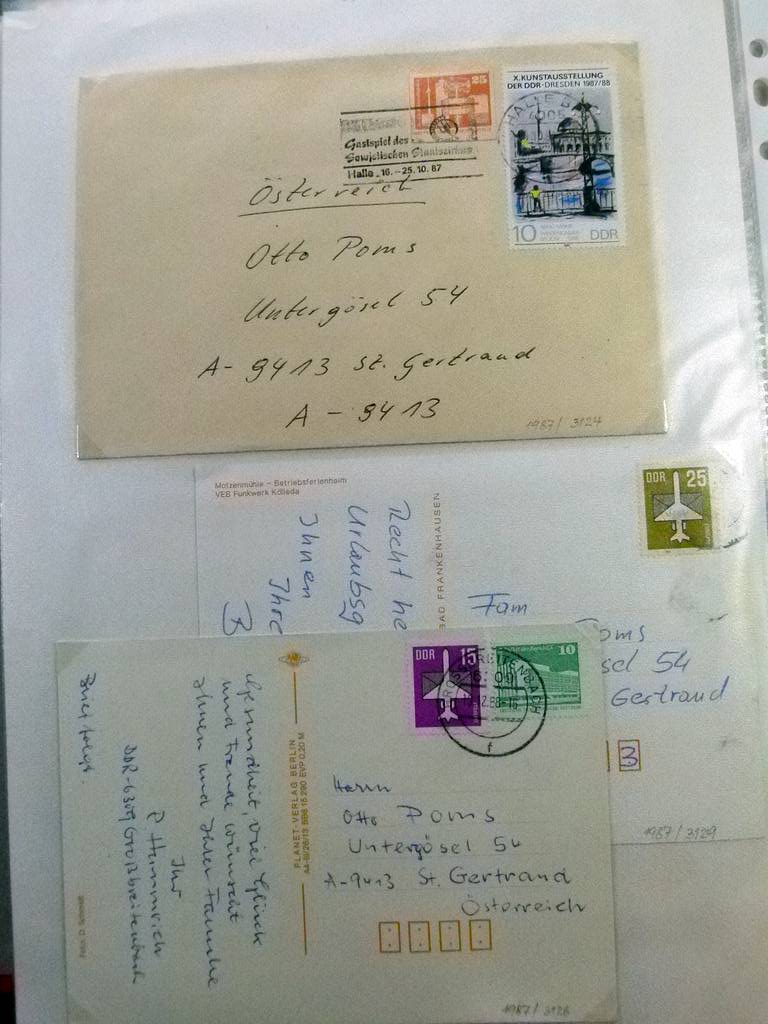 25
X. KUNSTAUSSTELLUNG
DER DDR·DRESDEN 1987/88
HALLE
Gastspiel des
Sowjetischen Staatszirkus
Halle, 16. – 25. 10. 87
10
DDR
Österreich
Otto Poms
Untergösel 54
A- 9413 St. Gertraud
A - 9413
1987 / 3124
Motzenmühle – Betriebsferienheim
VEB Funkwerk Kölleda
Recht he
Urlaubsg
Ihnen
Ihre
B
BAD FRANKENHAUSEN
DDR 25
Fam
oms
sel 54
Gertraud
3
1987 / 3129
DDR 15
10
GROSSBREITENBACH
f
Gesundheit, viel Glück
und Freude wünscht
Ihnen und Ihrer Familie
Ihr
P. Hammrich
DDR-6309 Großbreitenbach
Brief folgt.
Foto: D. Schmidt
PLANET-VERLAG BERLIN
EVP 0,20 M
Herrn
Otto Poms
Untergösel 54
A-9413 St. Gertraud
Österreich
1987 / 3128